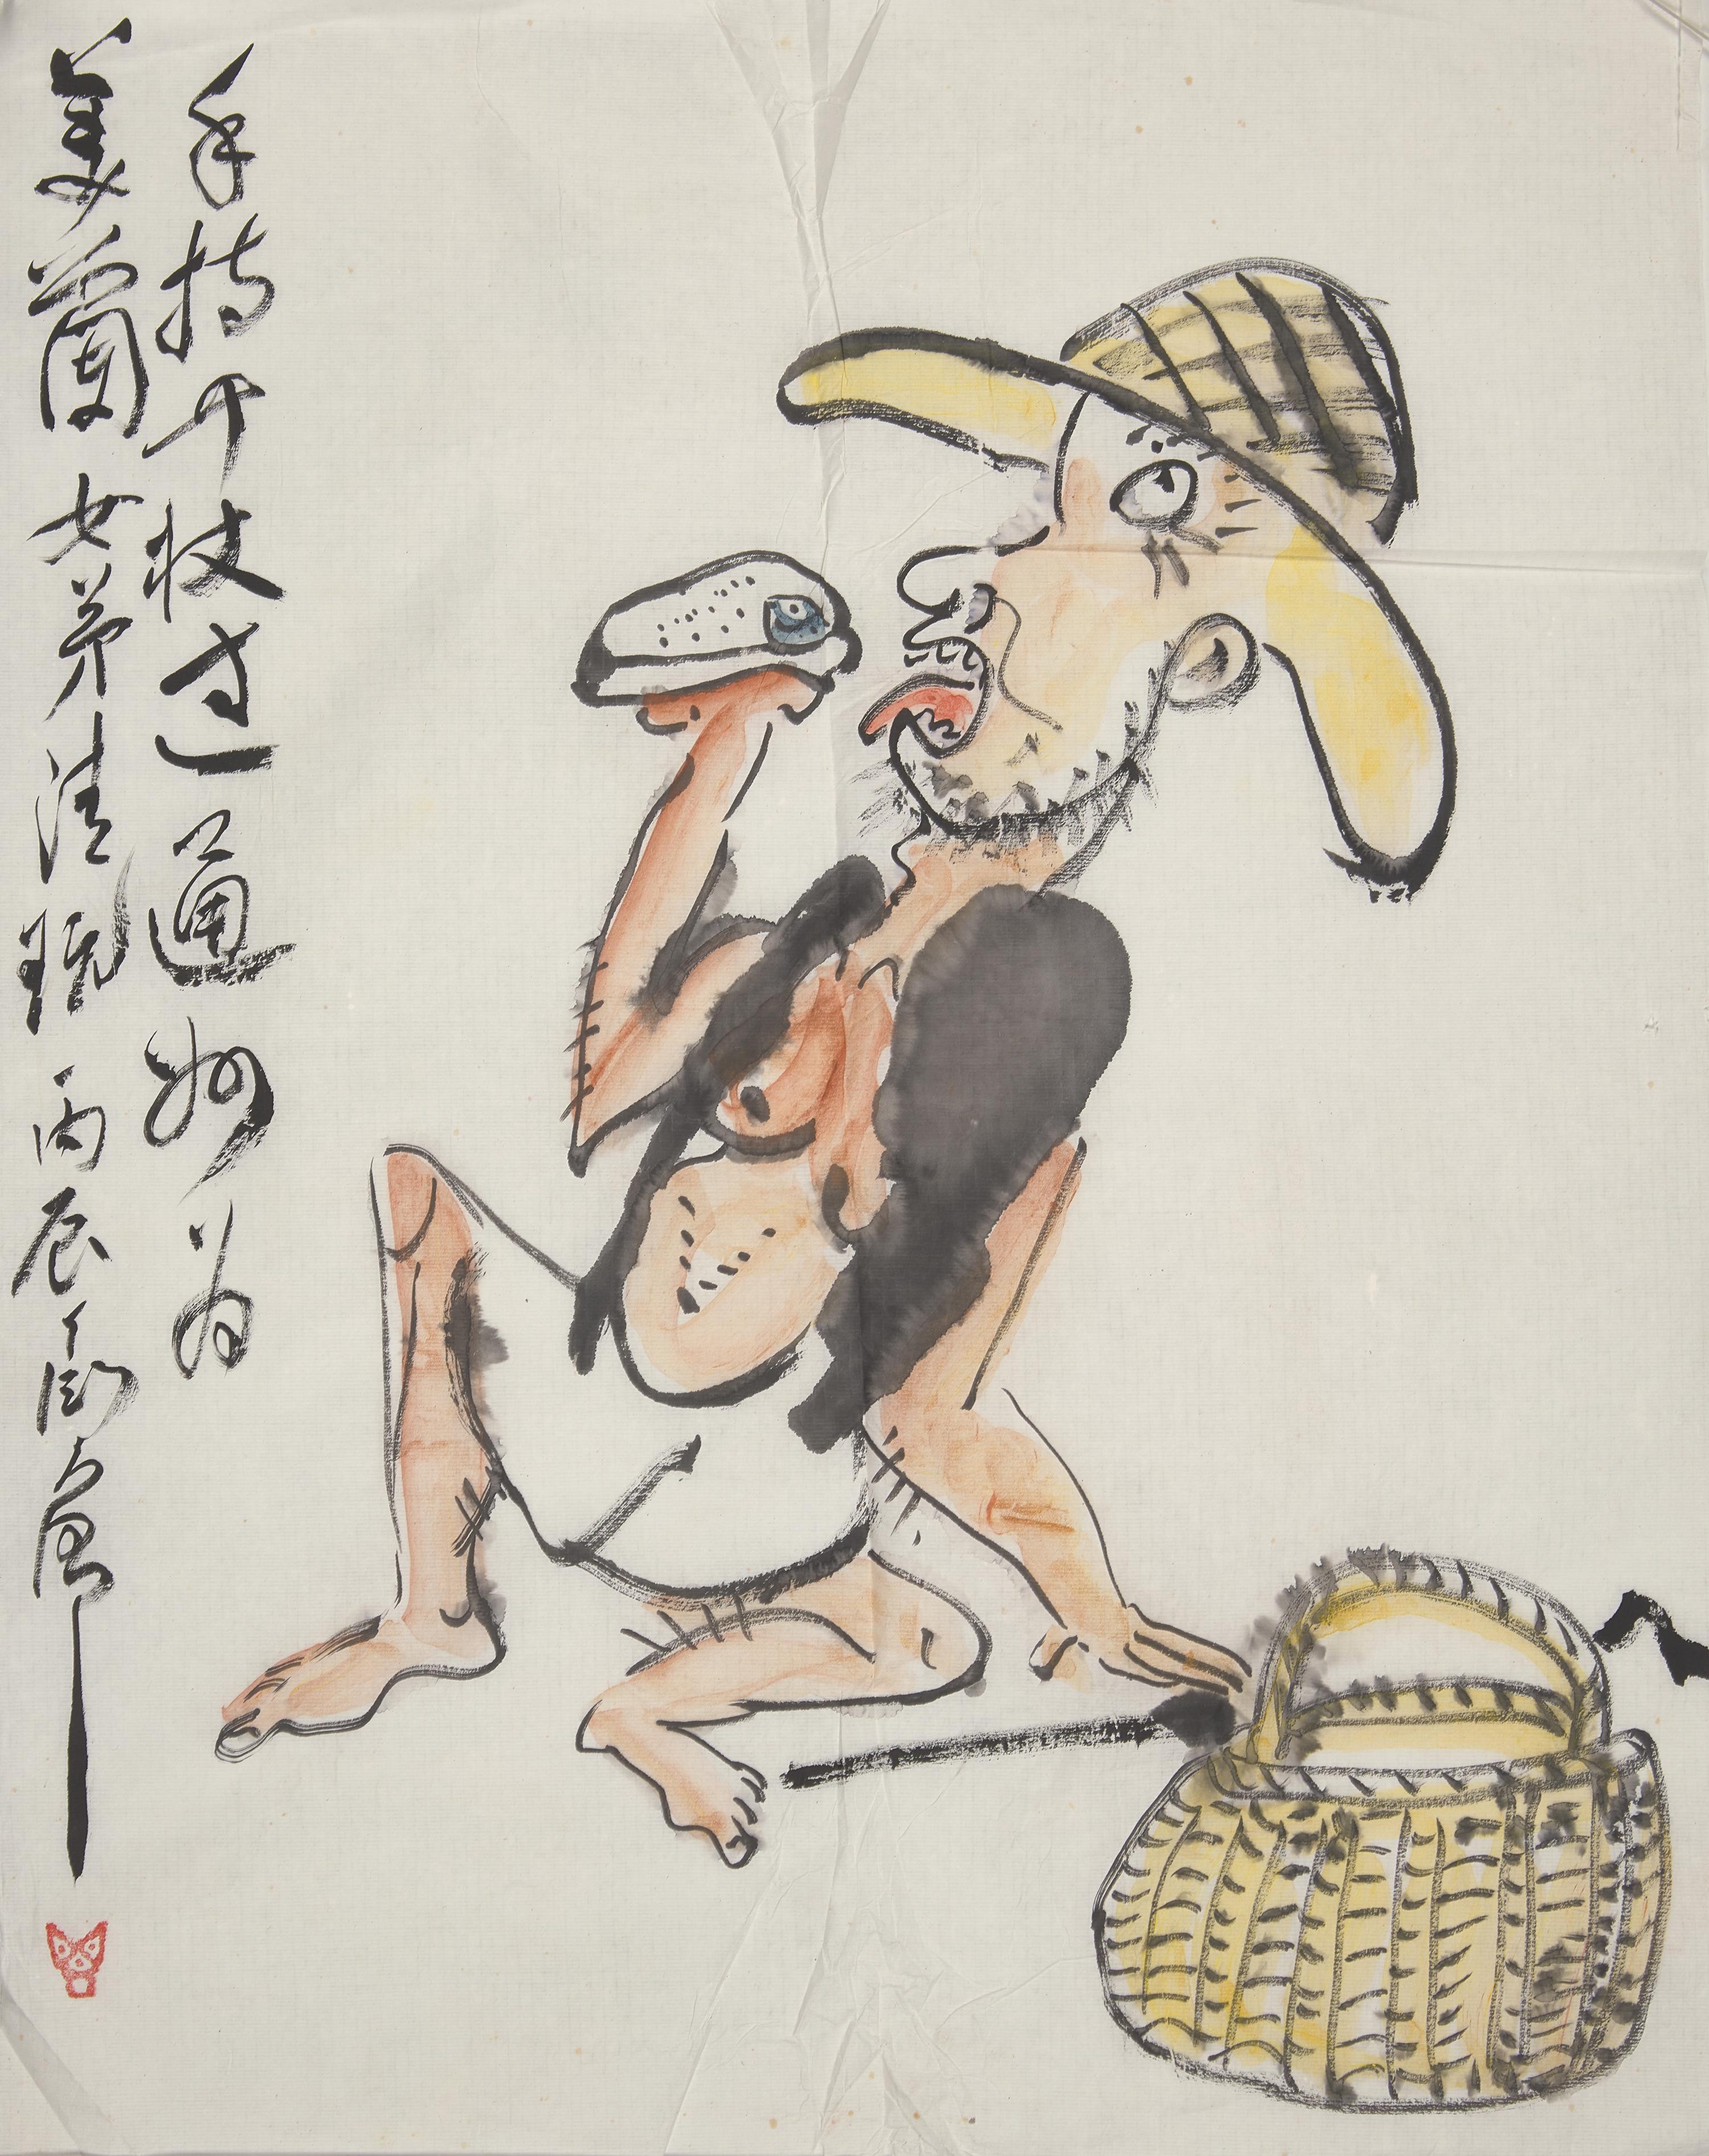 手持竹杖过通州为
美蘭女弟清玩 丙辰 丁衍庸